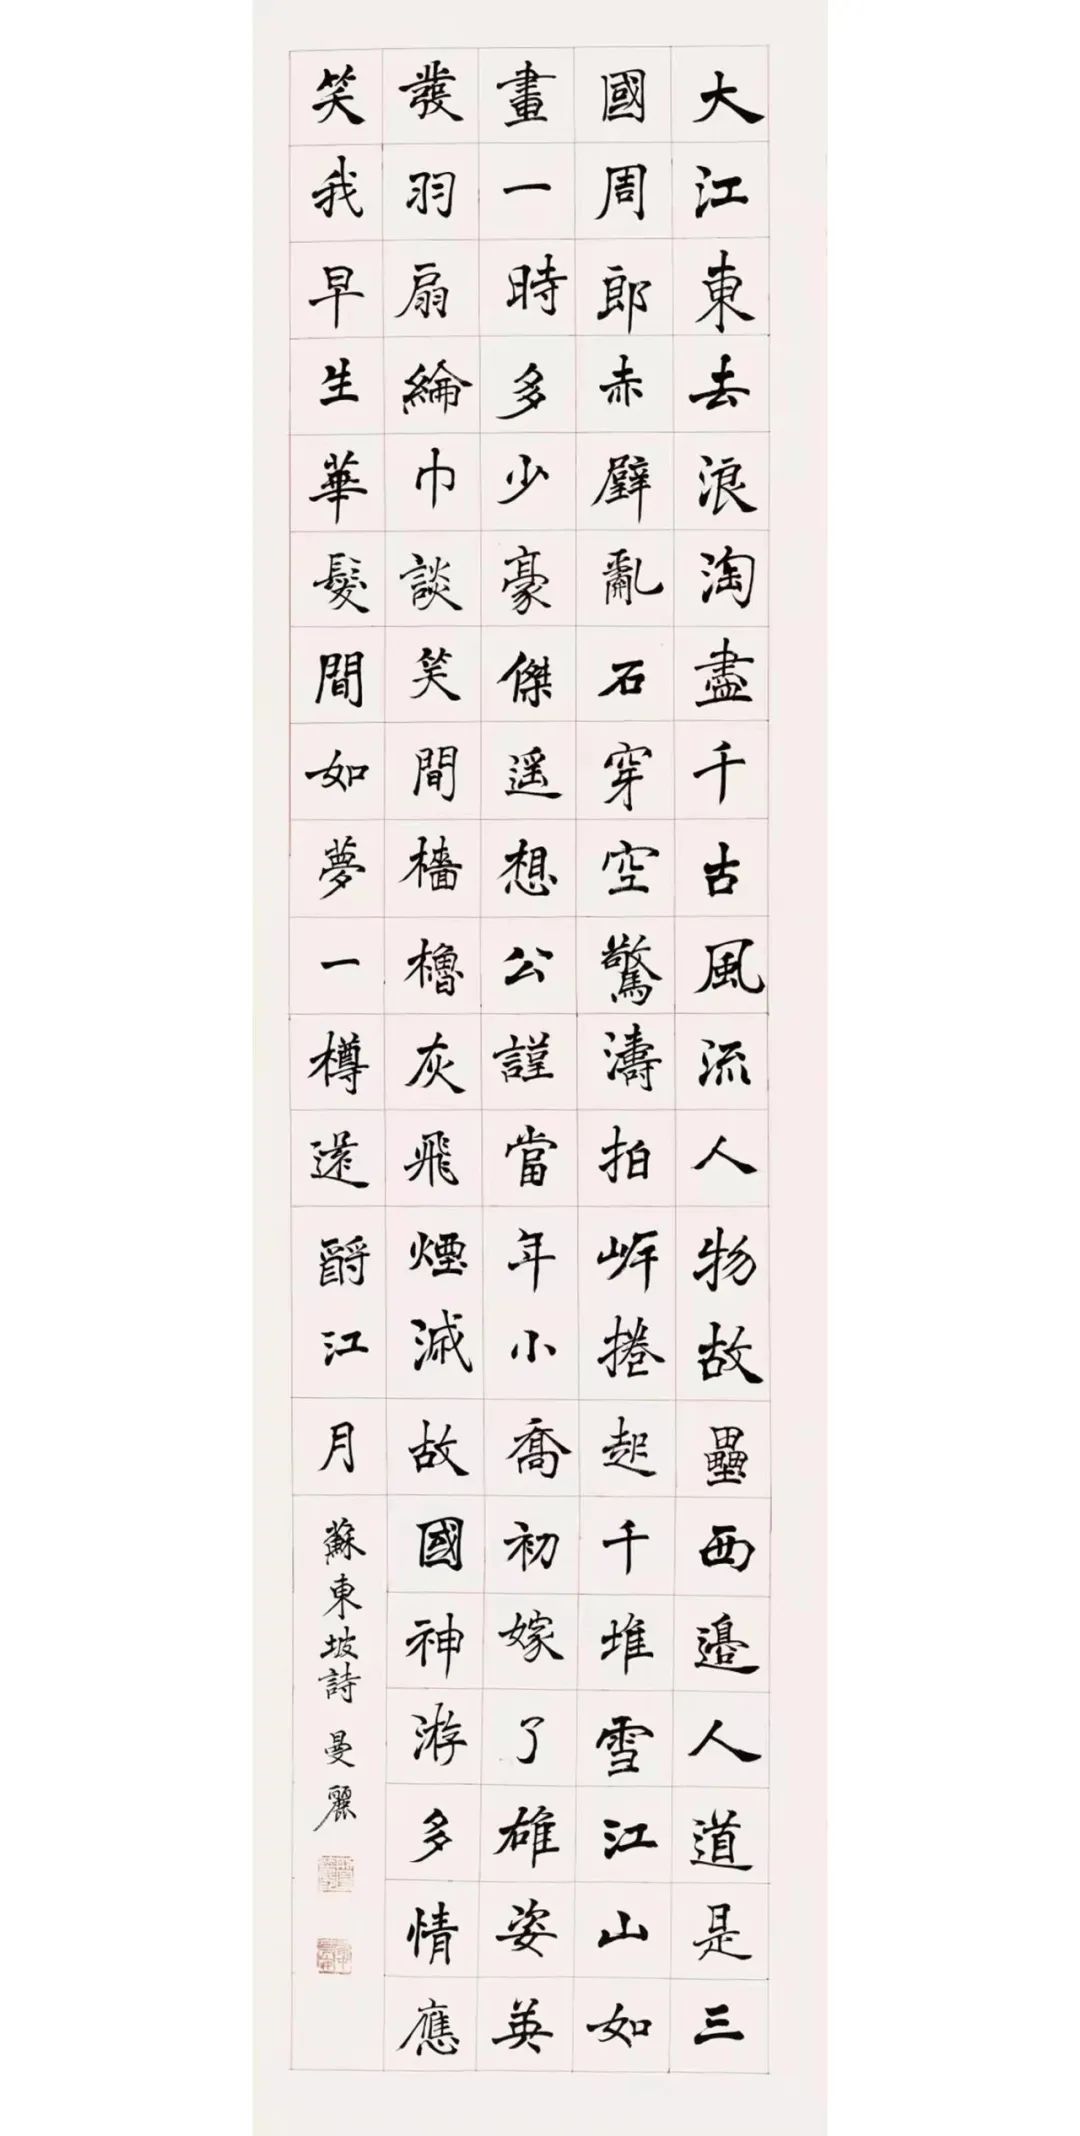 大江東去浪淘盡千古風流人物故壘西邊人道是三
國周郎赤壁亂石穿空驚濤拍岸捲起千堆雪江山如
畫一時多少豪傑遥想公謹當年小喬初嫁了雄姿英
發羽扇綸巾談笑間檣櫓灰飛煙滅故國神游多情應
笑我早生華髮間如夢一樽還酹江月
蘇東坡詩 曼麗